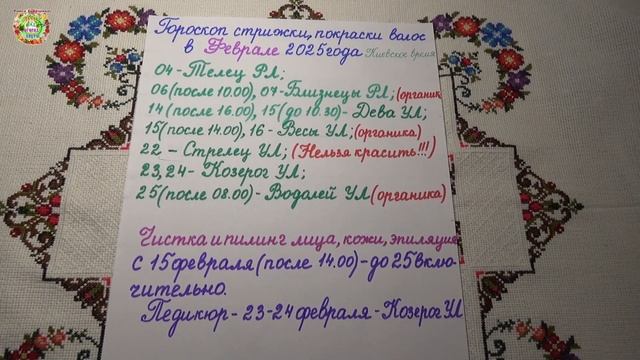 Гороскоп стрижки, покраски волос
в Феврале 2025 года Киевское время
04 - Телец РЛ;
06 (после 10.00), 07 - Близнецы РЛ; (органик
14 (после 16.00), 15 (до 10.30) - Дева УЛ;
15 (после 14.00), 16 - Весы УЛ; (органика)
22 - Стрелец УЛ; (Нельзя красить!!!)
23, 24 - Козерог УЛ;
25 (после 08.00) - Водолей УЛ (органика)
Чистка и пилинг лица, кожи, эпиляция
с 15 февраля (после 14.00) - до 25 вклю-
чительно.
Педикюр - 23-24 февраля - Козерог УЛ